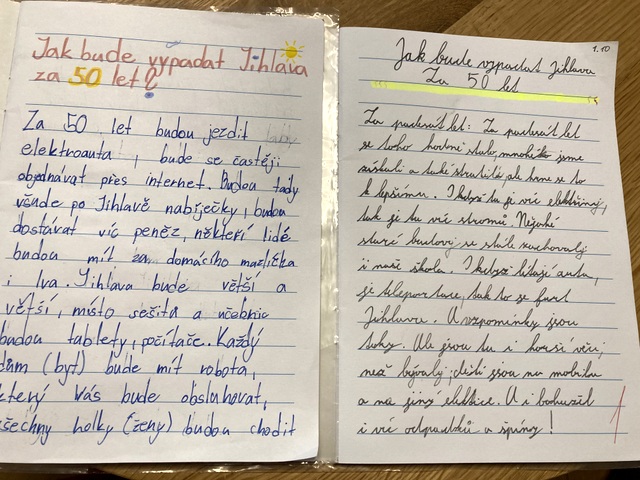 Jak bude vypadat Jihlava
za 50 let?
Za 50 let budou jezdit
elektroauta, bude se častěji
objednávat přes internet. Budou tády
všude po Jihlavě nabíječky, budou
dostávat víc peněz, někteří lidé
budou mít za domácího mazlíčka
i lva. Jihlava bude větší a
větší, místo sešita a učebnic
budou tablety, počítače. Každý
dům (byt) bude mít robota,
který Vás bude obsluhovat,
všechny holky (ženy) budou chodit
1.10
Jak bude vypadat Jihlava
Za 50 let
Za padesát let: Za padesát let
se toho hodně stalo, mnohé jsme
získali a také stratili ale hne se to
k lepšímu. I když tu je víc elektřiny,
tak je tu víc stromů. Nějaké
staré budovy se stále zachovaly
i naše škola. I když lítají auta,
je teleportace, tak to je furt
Jihlava. A vzpomínky jsou
taky. Ale jsou tu i horší věci,
než bývaly, děti jsou na mobilu
a na jiný elektice. A i bohužel
i víc odpadků a špíny!